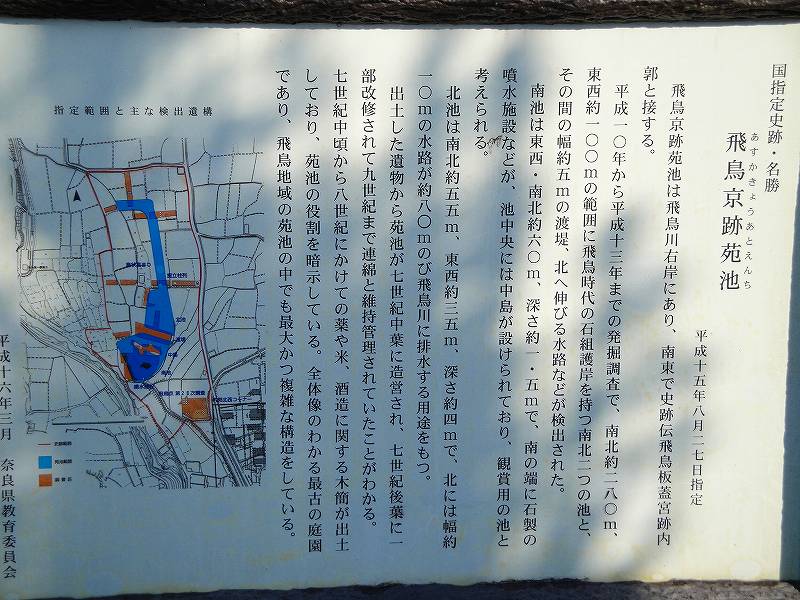 国指定史跡・名勝
あすかきょうあとえんち
飛鳥京跡苑池
平成十五年八月二七日指定
飛鳥京跡苑池は飛鳥川右岸にあり、南東で史跡伝飛鳥板蓋宮跡内
郭と接する。
平成一〇年から平成十三年までの発掘調査で、南北約二八〇m、
東西約一〇〇mの範囲に飛鳥時代の石組護岸を持つ南北二つの池と、
その間の幅約五mの渡堤、北へ伸びる水路などが検出された。
南池は東西・南北約六〇m、深さ約一・五mで、南の端に石製の
噴水施設などが、池中央には中島が設けられており、観賞用の池と
考えられる。
北池は南北約五五m、東西約三五m、深さ約四mで、北には幅約
一〇mの水路が約八〇mのび飛鳥川に排水する用途をもつ。
出土した遺物から苑池が七世紀中葉に造営され、七世紀後葉に一
部改修されて九世紀まで連綿と維持管理されていたことがわかる。
七世紀中頃から八世紀にかけての薬や米、酒造に関する木簡が出土
しており、苑池の役割を暗示している。全体像のわかる最古の庭園
であり、飛鳥地域の苑池の中でも最大かつ複雑な構造をしている。
指定範囲と主な検出遺構
平成十六年三月 奈良県教育委員会